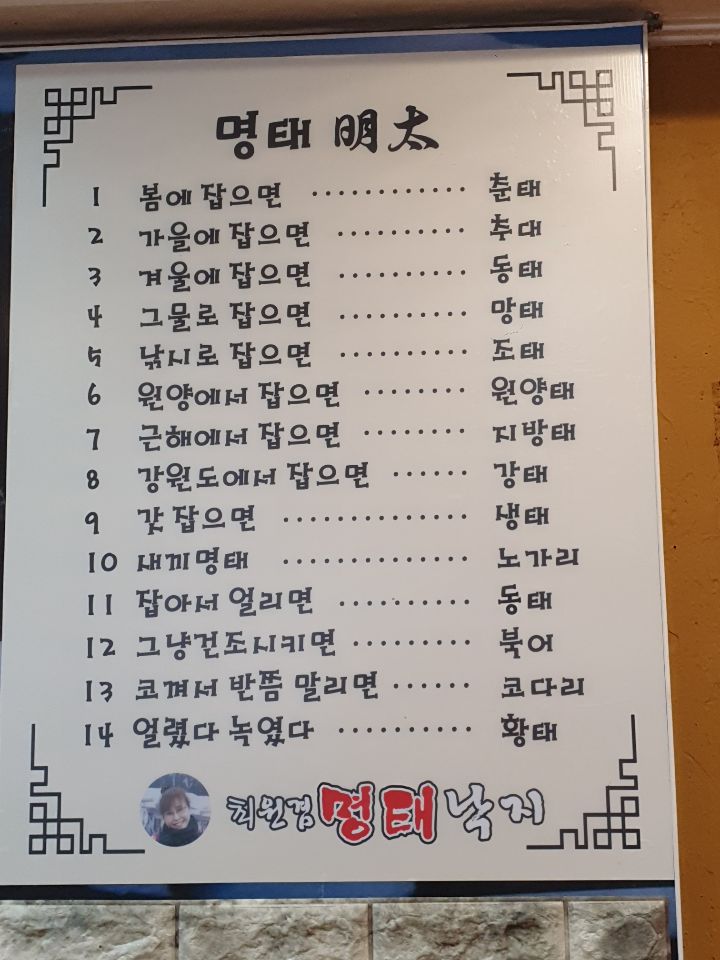 명태 明太
1 봄에 잡으면 ············ 춘태
2 가을에 잡으면 ·········· 추대
3 겨울에 잡으면 ·········· 동태
4 그물로 잡으면 ·········· 망태
5 낚시로 잡으면 ·········· 조태
6 원양에서 잡으면 ········ 원양태
7 근해에서 잡으면 ········ 지방태
8 강원도에서 잡으면 ······ 강태
9 갓 잡으면 ·············· 생태
10 새끼명태 ·············· 노가리
11 잡아서 얼리면 ·········· 동태
12 그냥건조시키면 ········· 북어
13 코껴서 반쯤 말리면 ······ 코다리
14 얼렸다 녹였다 ·········· 황태
최원겸 명태 낙지